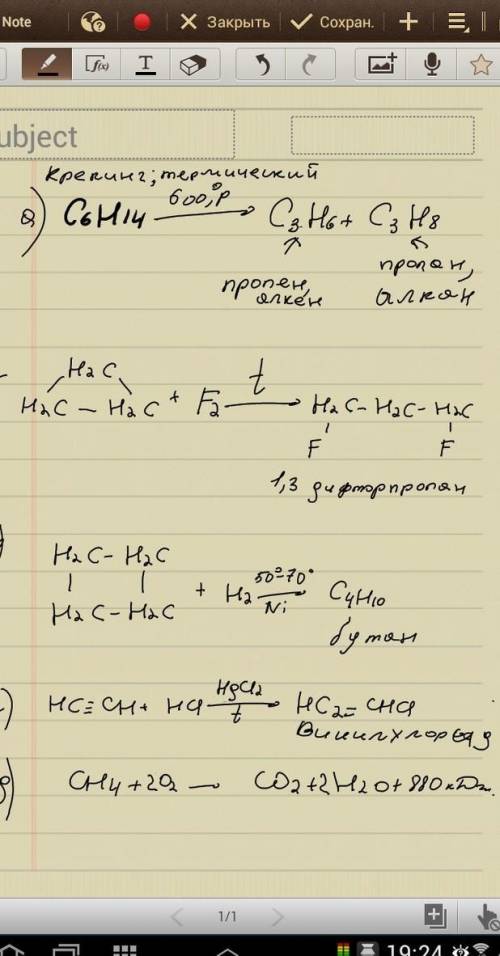 Note Закрыть Сохран.
T
ubject
крекинг; термический
а) C6H14 600°, P → C3H6 + C3H8
пропен, алкен
пропан, алкан
H2C
H2C – H2C + F2 t → H2C – H2C – H2C
F F
1,3 дифторпропан
H2C – H2C
H2C – H2C + H2 50°-70° Ni → C4H10
бутан
HC≡CH + HCl HgCl2 t → HC2=CHCl
Винилхлорид
д) CH4 + 2O2 — CO2 + 2H2O + 880 кДж.
1/1
19:24